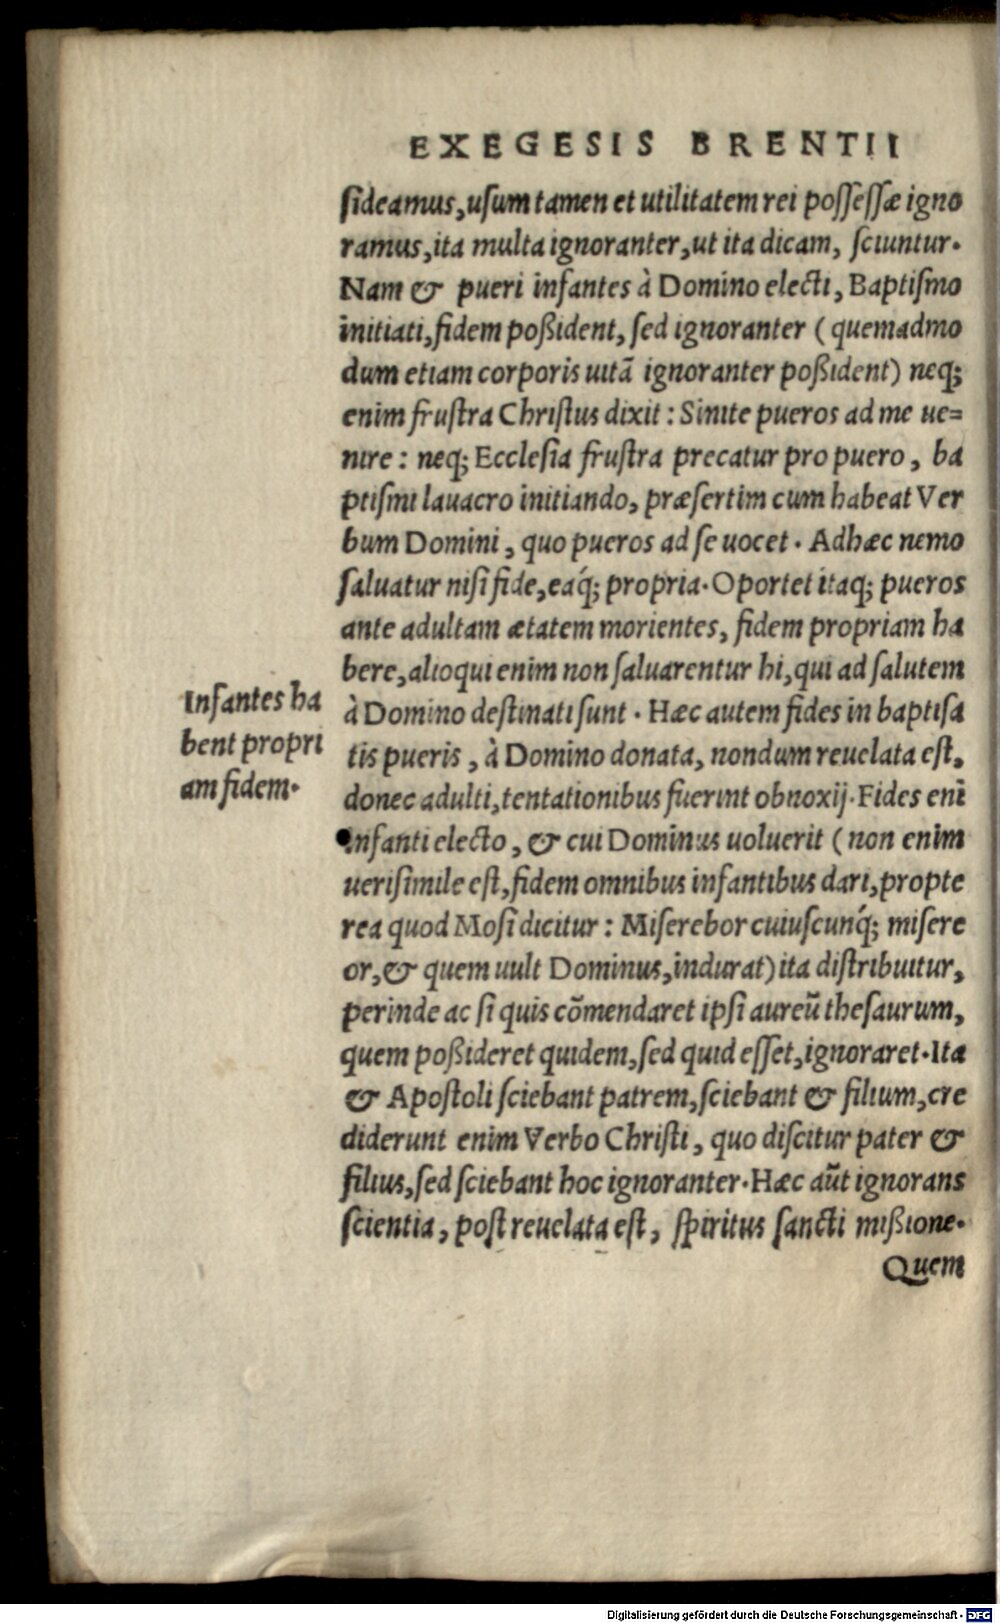 EXEGESIS BRENTII
ſideamus, uſum tamen et utilitatem rei poſſeſſæ igno
ramus, ita multa ignoranter, ut ita dicam, ſciuntur.
Nam & pueri infantes à Domino electi, Baptiſmo
initiati, fidem poßident, ſed ignoranter (quemadmo
dum etiam corporis uitã ignoranter poßident) neq;
enim fruſtra Chriſtus dixit: Sinite pueros ad me ue=
nire: neq; Eccleſia fruſtra precatur pro puero, ba
ptiſmi lauacro initiando, præſertim cum habeat Ver
bum Domini, quo pueros ad ſe uocet. Adhæc nemo
ſaluatur niſi fide, eaq́; propria. Oportet itaq; pueros
ante adultam ætatem morientes, fidem propriam ha
bere, alioqui enim non ſaluarentur hi, qui ad ſalutem
à Domino deſtinati ſunt. Hæc autem fides in baptiſa
tis pueris, à Domino donata, nondum reuelata eſt,
donec adulti, tentationibus fuerint obnoxij. Fides enĩ
infanti electo, & cui Dominus uoluerit (non enim
ueriſimile eſt, fidem omnibus infantibus dari, propte
rea quod Moſi dicitur: Miſerebor cuiuſcunq́; miſere
or, & quem uult Dominus, indurat) ita diſtribuitur,
perinde ac ſi quis cõmendaret ipſi aureũ theſaurum,
quem poßideret quidem, ſed quid eſſet, ignoraret. Ita
& Apoſtoli ſciebant patrem, ſciebant & filium, cre
diderunt enim Verbo Chriſti, quo diſcitur pater &
filius, ſed ſciebant hoc ignoranter. Hæc aũt ignorans
ſcientia, poſt reuelata eſt, ſpiritus ſancti mißione.
Quem
Infantes ha
bent propri
am fidem.
Digitalisierung gefördert durch die Deutsche Forschungsgemeinschaft - DFG